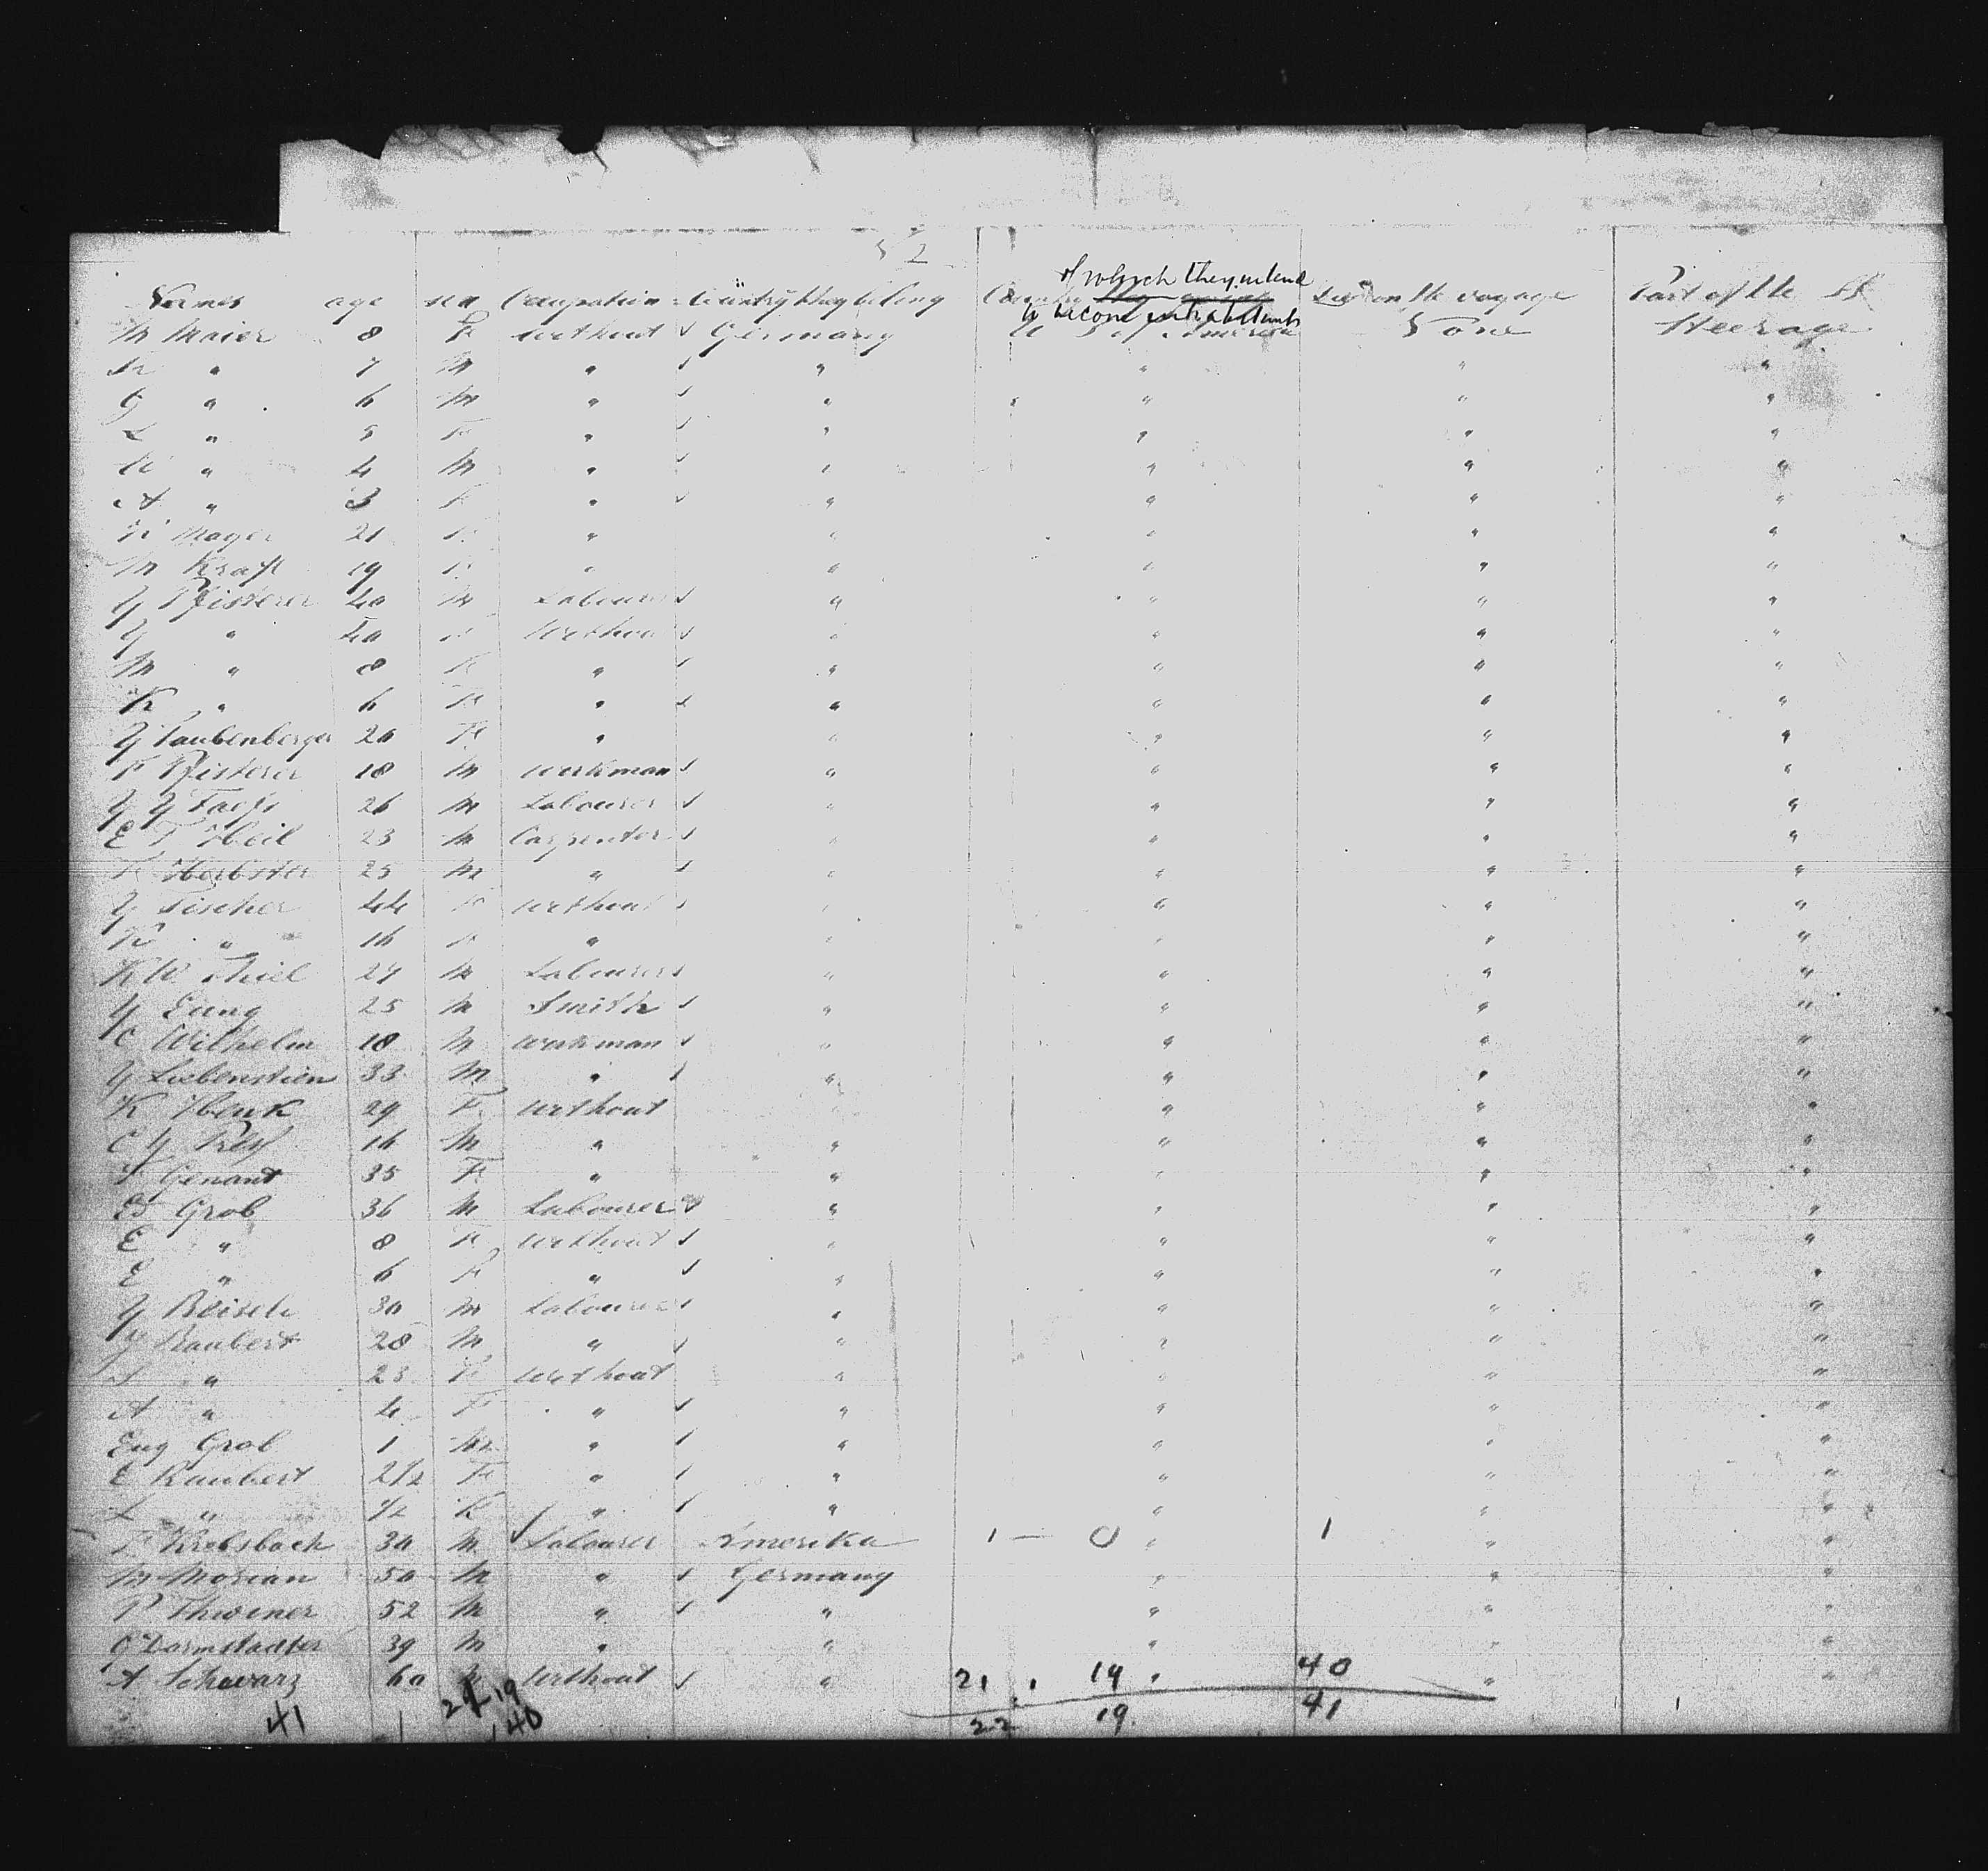 2
of which they intend
Names age sex Occupation Country they belong Country to become inhabitants Died on the voyage Part of the
M Maier 8 F without Germany U S of America None Steerage
Fr " 7 M " " " " "
G " 6 M " " " " "
L " 5 F " " " " "
" 4 M " " " " "
A " 3 F " " " " "
Mayer 21 F " " " " "
M Kraft 19 F " " " " "
Y Pfisterer 40 M Labourer " " " "
Y " 40 F Without " " " "
M " 8 F " " " " "
K " 6 F " " " " "
Y Laubenberger 20 F " " " " "
F Pfisterer 18 M Workman " " " "
Y Y 26 M Labourer " " " "
E F Heil 23 M Carpenter " " " "
F Herbster 25 M " " " " "
Y Fischer 44 F without " " " "
K " 16 F " " " " "
K W Thiel 27 M Labourer " " " "
Y Eung 25 M Smith " " " "
C Wilhelm 18 M Workman " " " "
Y Liebenstien 33 M " " " " "
K Henk 29 F without " " "
C Y 16 M " " " " "
F Genant 35 F " " " " "
Ed Grob 36 M Labourer " " " "
E " 8 F without " " " "
E " 6 F " " " " "
Y Beisch 30 M Labourer " " " "
Y Raubert 28 M " " " " "
S " 23 F without " " " "
A " 4 F " " " " "
Eug Grob 1 M " " " " "
E Raubert 2 1/2 F " " " " "
L " 1/2 F " " " " "
F Krebsbach 30 M Labourer Amerika 1 — 0 " 1 " "
M Morian 50 M " Germany " " "
P Thwener 52 M " " " " "
C Darmstadter 39 M " " " " "
A Schwarz 60 F without " 21 19 " 40 " "
41 21 19 40 22 19 41